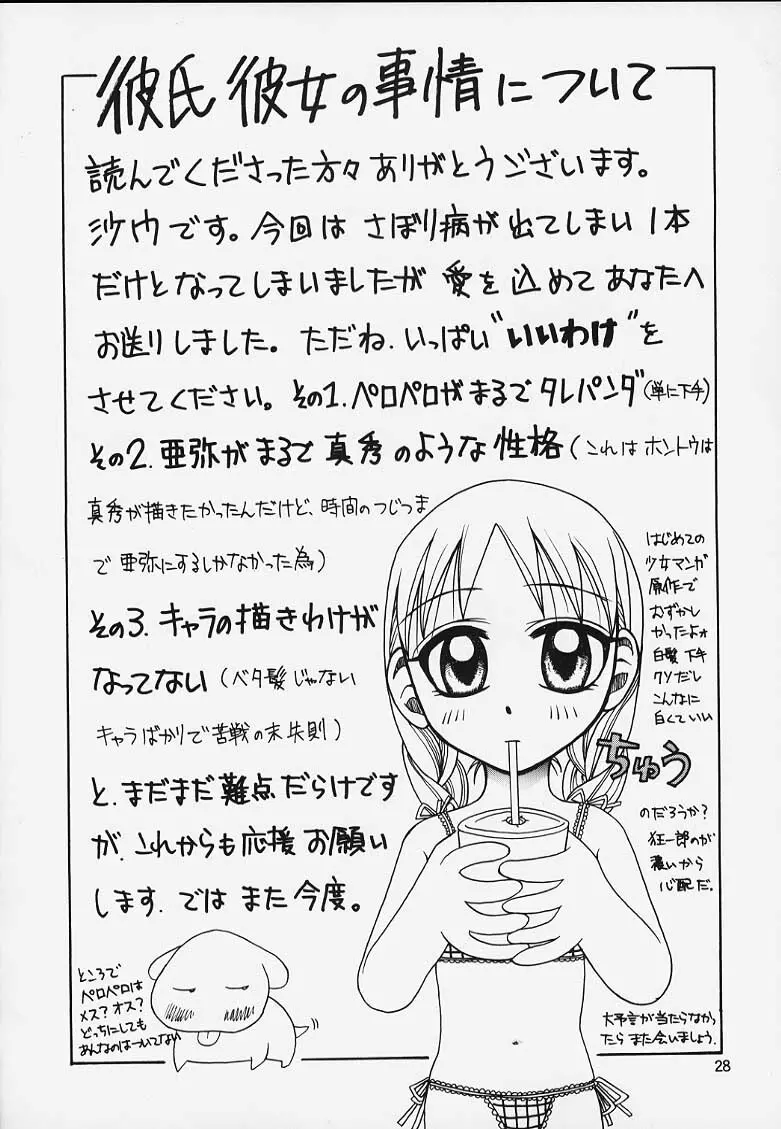 彼氏彼女の事情について
読んでくださった方々ありがとうございます。
沙ウです。今回は さぼり病が出てしまい 1本
だけとなってしまいましたが 愛を込めて あなたへ
お送りしました。ただね、いっぱい"いいわけ"を
させてください。その1.ペロペロがまるでタレパンダ(単に下手)
その2.亜弥がまるで真秀のような性格(これはホントウは
真秀が描きたかったんだけど、時間のつじつま
で亜弥にするしかなかった為)
その3.キャラの描きわけが
なってない(ベタ髪じゃない
キャラばかりで苦戦の末失則)
と、まだまだ難点だらけです
が、これからも応援お願い
します。ではまた今度。
はじめての
少女マンガ
原作で
むずかし
かったよォ
白髪下手
クソだし
こんなに
白くていい
のだろうか?
狂一郎のが
濃いから
心配だ。
ちゅう
ところで
ペロペロは
メス?オス?
どっちにしても
あんなのはーついてない
大予言が当たらなかっ
たらまた会いましょう。
28